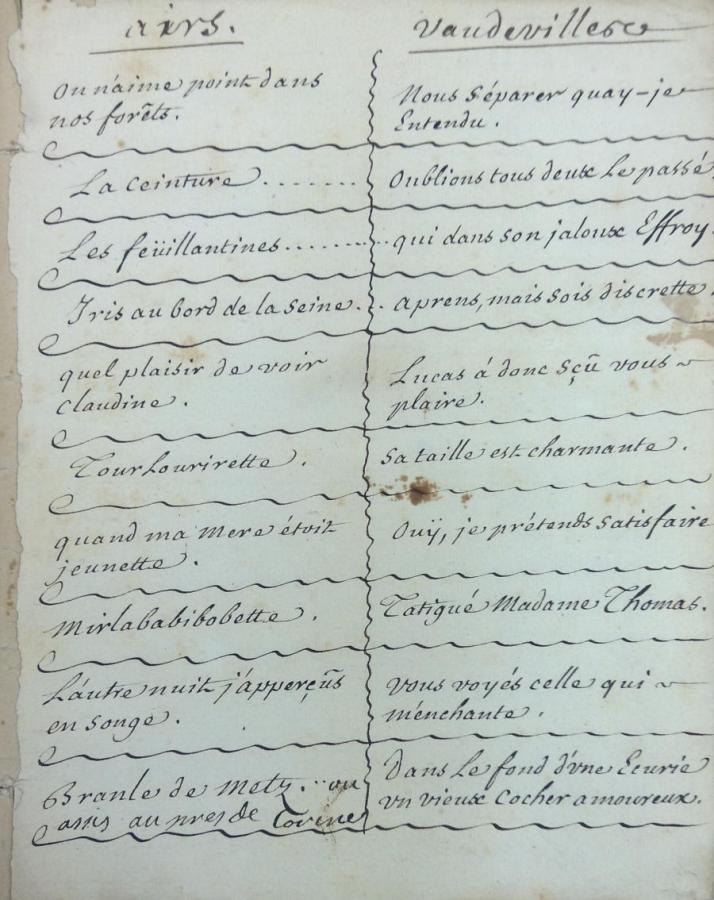 airs.
Vaudevilles
On n'aime point dans
nos forêts.
Nous séparer quay-je
Entendu.
La Ceinture ........
Oublions tous deux Le passé,
Les feüillantines ..........
qui dans son jaloux Effroy.
Iris au bord de la Seine...
aprens, mais sois discrette.
quel plaisir de voir
Claudine.
Lucas á donc sçû vous ~
plaire.
Tourlourirette.
Sa taille est charmante.
quand ma Mere étoit
jeunette.
Ouÿ, je prétends satisfaire
Mirlababibobette.
Tatigué Madame Thomas.
L'autre nuit j'apperçûs
en songe.
Vous voyés celle qui ~
m'enchante.
Branle de Metz... ou
assis au pres de Corine
Dans Le fond d'vne Ecurie
vn vieux Cocher amoureux.